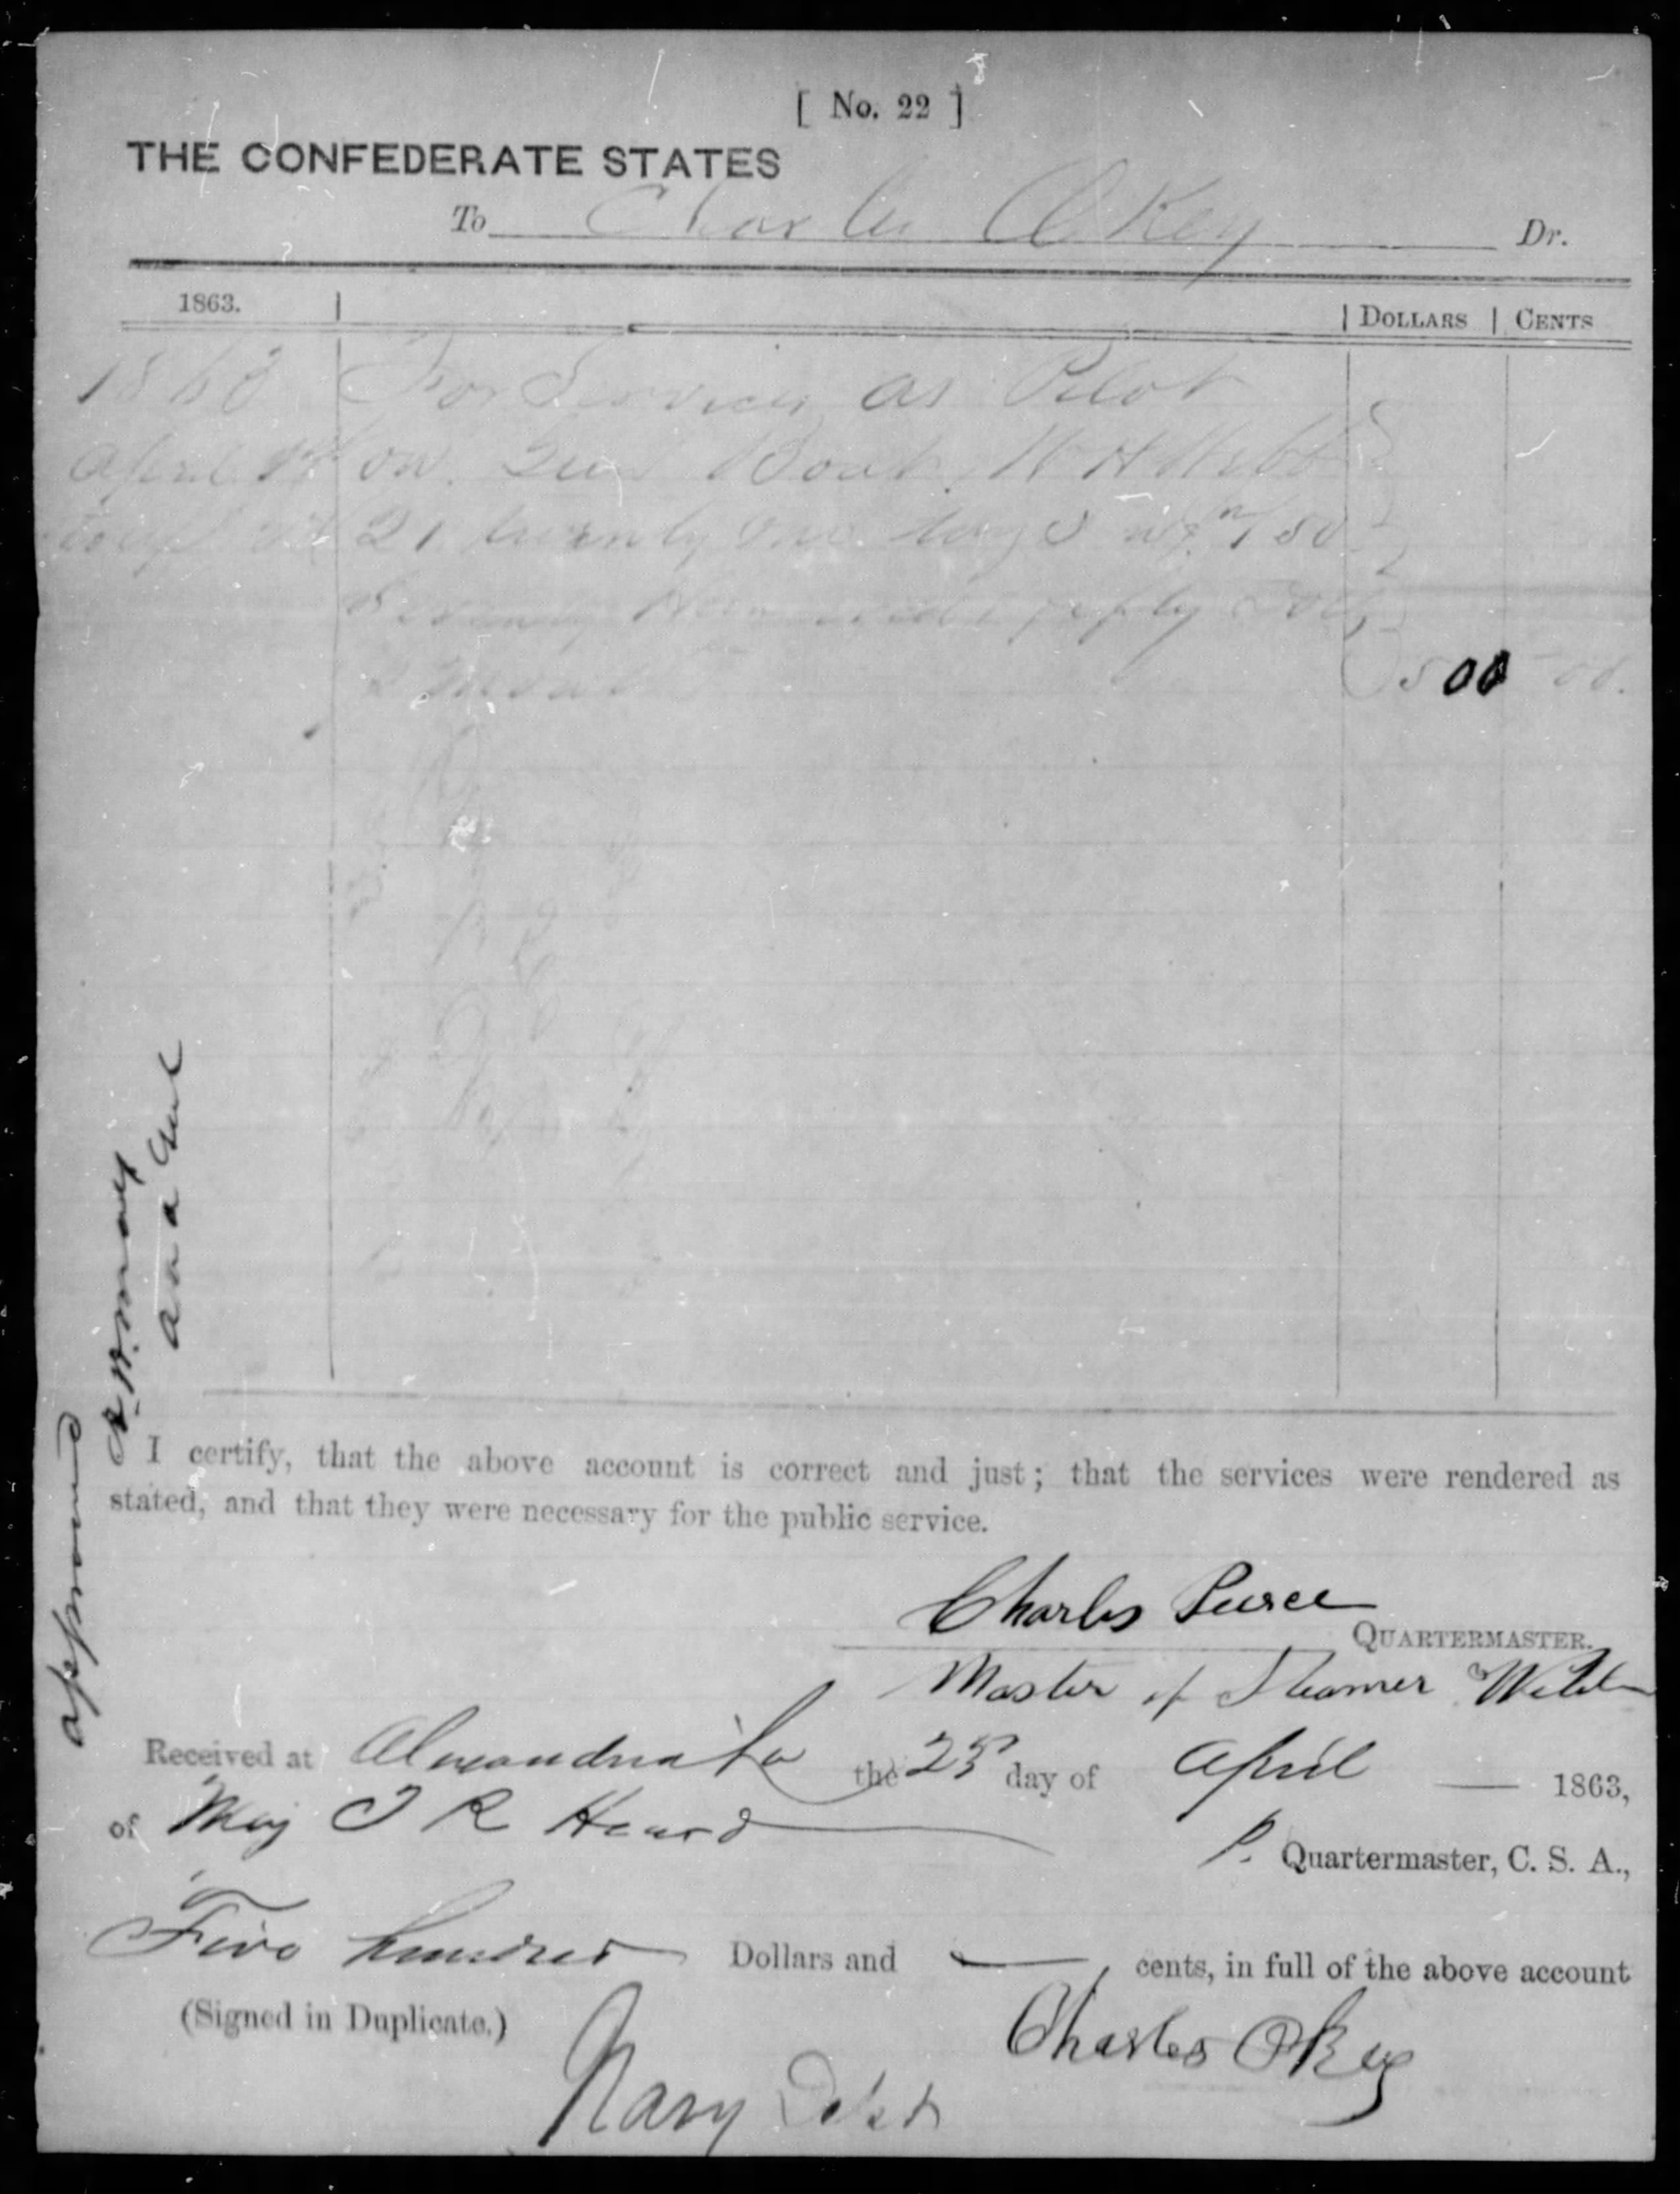 [ No. 22 ]
THE CONFEDERATE STATES
To Charles OKey Dr.
1863. | DOLLARS | CENTS
1863 For Services as Pilot
April on Gun Boat W H Webb
21 twenty one days
fifty
500 00.
I certify, that the above account is correct and just; that the services were rendered as
stated, and that they were necessary for the public service.
Charles Pierce
QUARTERMASTER.
Master of Steamer Webb
Received at Alexandria La the 25 day of April 1863,
of Maj T R Heard P. Quartermaster, C. S. A.,
Five hundred Dollars and — cents, in full of the above account
(Signed in Duplicate.)
Charles OKey
Navy Dept
approved